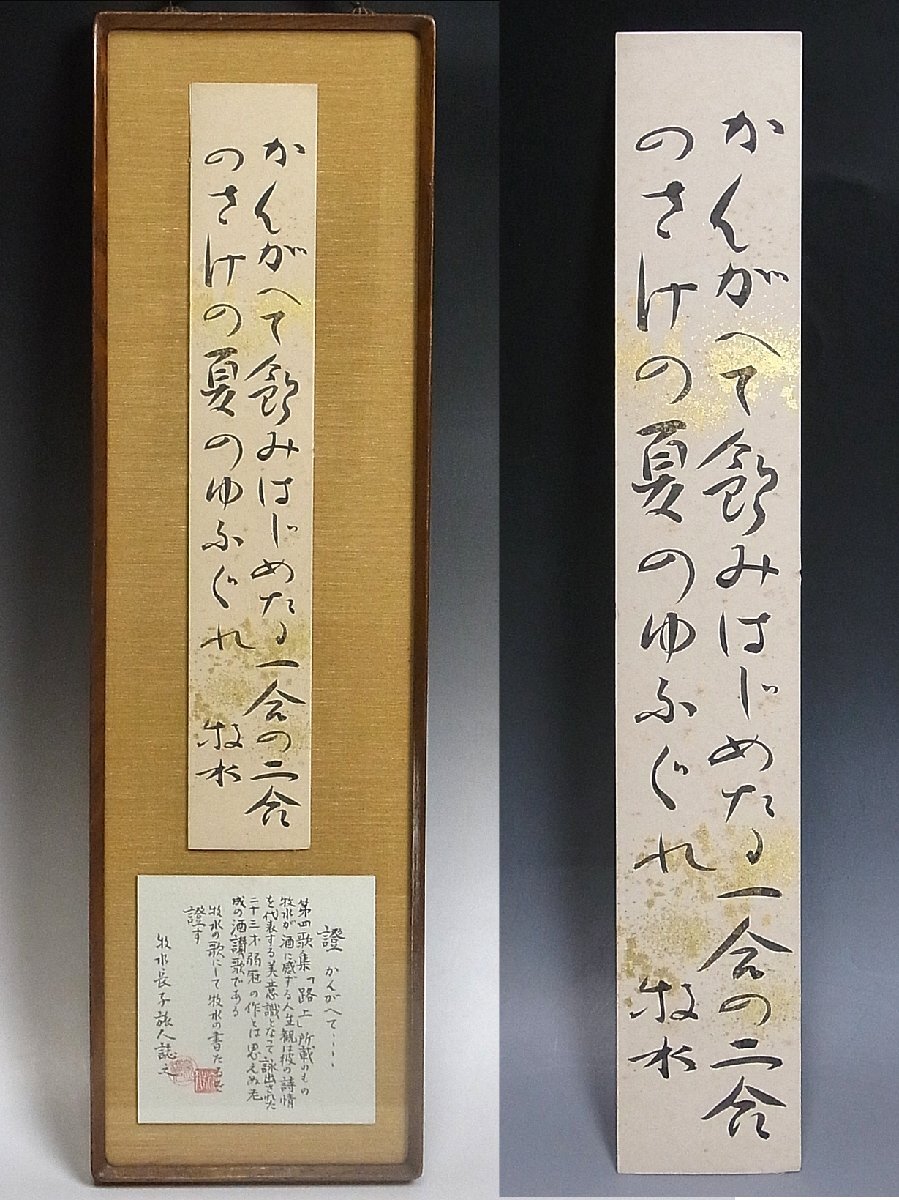 かんがへて飲みはじめたる一合の二合
のさけの夏のゆふぐれ
牧水
證 かんがへて・・・・
第四歌集「路上」所載のもの
牧水が酒に感ずる人生観は彼の詩情
を代表する美意識となって詠出された
二十三才弱冠の作とは思えぬ老
成の酒讃歌である
牧水の歌にして牧水の書たるを
證す
牧水長子旅人誌之
かんがへて飲みはじめたる一合の二合
のさけの夏のゆふぐれ
牧水